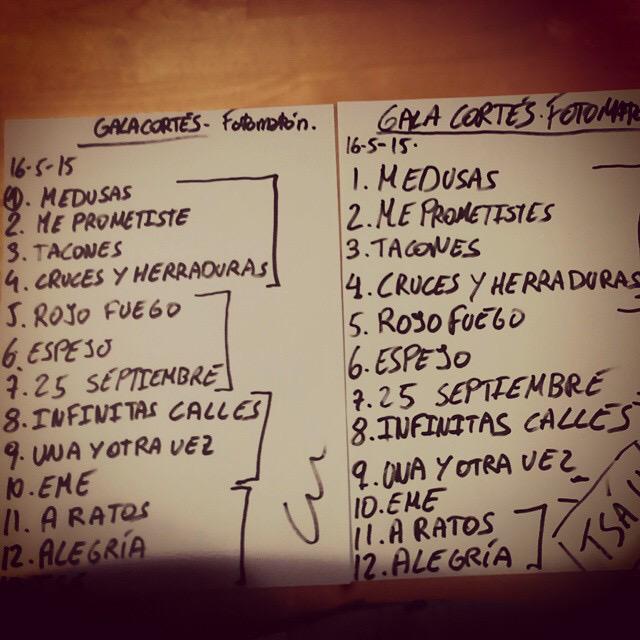 GALA CORTÉS - Fotomatón.
16-5-15
1. MEDUSAS
2. ME PROMETISTE
3. TACONES
4. CRUCES Y HERRADURAS
5. ROJO FUEGO
6. ESPEJO
7. 25 SEPTIEMBRE
8. INFINITAS CALLES
9. UNA Y OTRA VEZ
10. EME
11. A RATOS
12. ALEGRÍA
GALA CORTÉS. FOTOMAT
16-5-15.
1. MEDUSAS
2. ME PROMETISTES
3. TACONES
4. CRUCES Y HERRADURAS
5. ROJO FUEGO
6. ESPEJO
7. 25 SEPTIEMBRE
8. INFINITAS CALLES
9. UNA Y OTRA VEZ
10. EME
11. A RATOS
12. ALEGRÍA